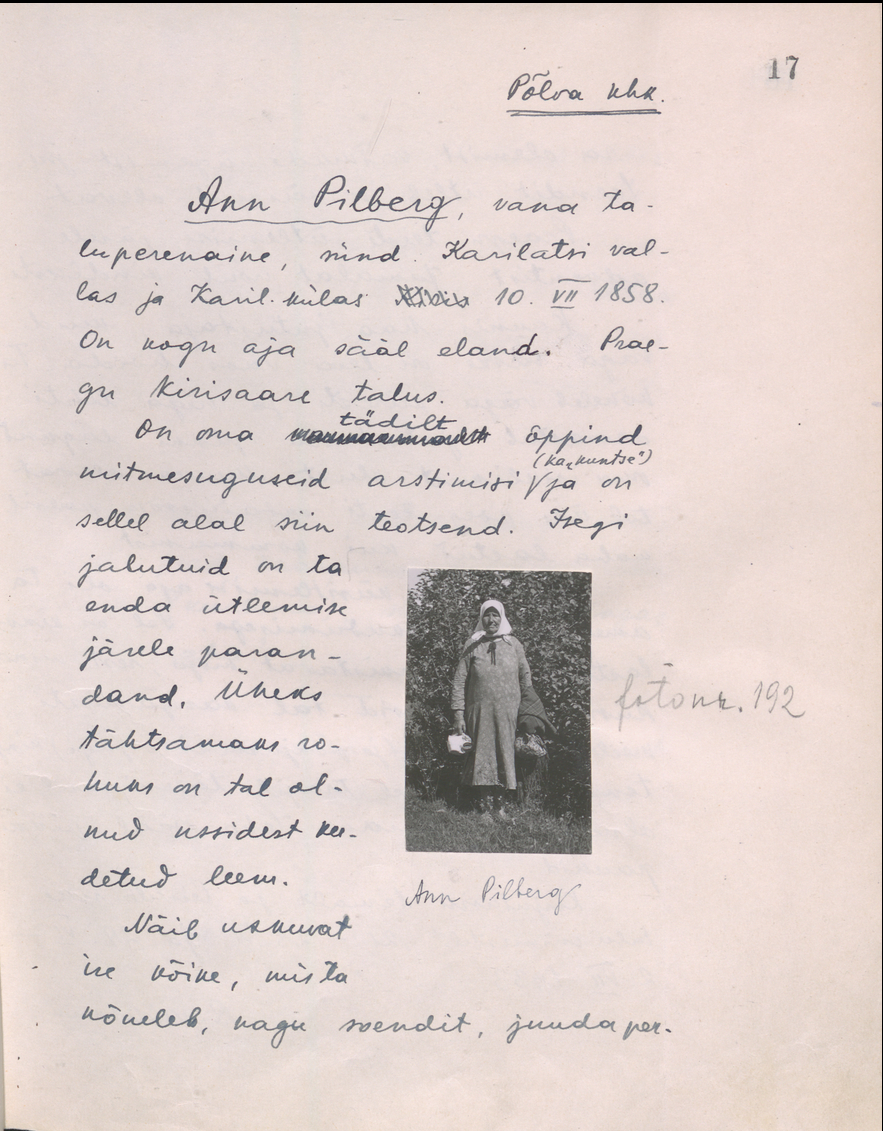 17
Põlva khk.
Ann Pilberg, vana ta-
luperenaine, sünd. Karilatsi val-
las ja Karil. külas 10. VII 1858.
On kogu aja sääl eland. Prae-
gu Kirisaare talus.
On oma tädilt õppind
mitmesuguseid arstimisi (ka „kuntse") ja on
sellel alal siin teotsend. Isegi
jalutuid on ta
enda ütlemise
järele paran-
dand. Üheks
tähtsamaks ro-
huks on tal ol-
nud ussidest kee-
detud leem.
Näib uskuvat
ise kõike, mis ta
kõneleb, nagu soendit, juuda per-
fotonr. 192
Ann Pilberg